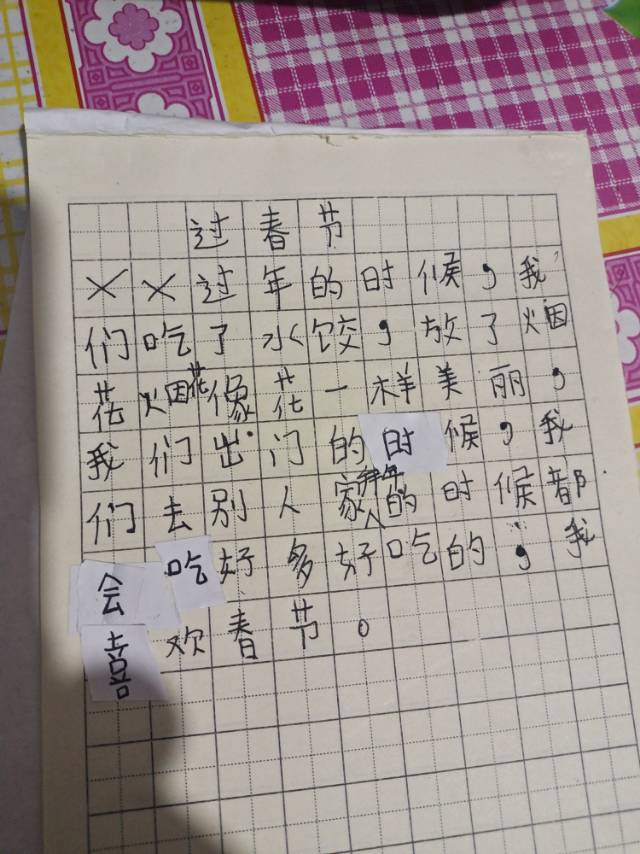 过春节
××过年的时候，我
们吃了水饺，放了烟
花烟花像花一样美丽，
我们出门的时候，我
们去别人家拜年的时候都
会吃好多好吃的，我
喜欢春节。